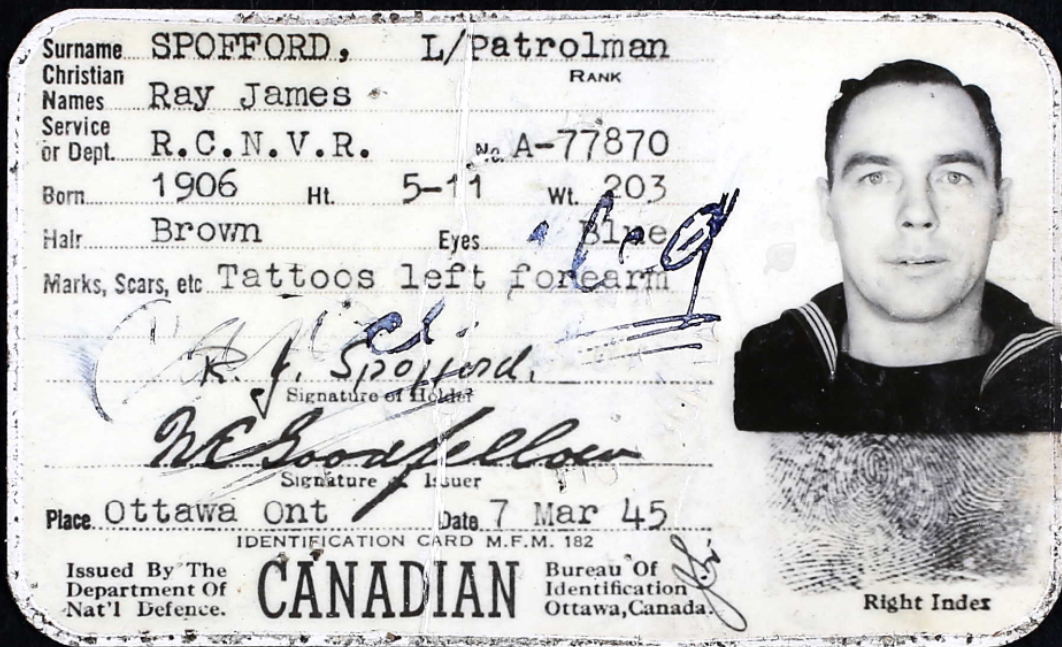 Surname SPOFFORD, L/Patrolman
RANK
Christian
Names Ray James
Service
or Dept. R.C.N.V.R. No. A-77870
Born 1906 Ht. 5-11 Wt. 203
Hair Brown Eyes Blue
Marks, Scars, etc Tattoos left forearm
R. J. Spofford.
Signature of Holder
Goodfellow
Signature Issuer
Place Ottawa Ont Date 7 Mar 45
IDENTIFICATION CARD M.F.M. 182
Issued By The
Department Of
Nat'l Defence.
CANADIAN
Bureau Of
Identification
Ottawa, Canada.
Right Index